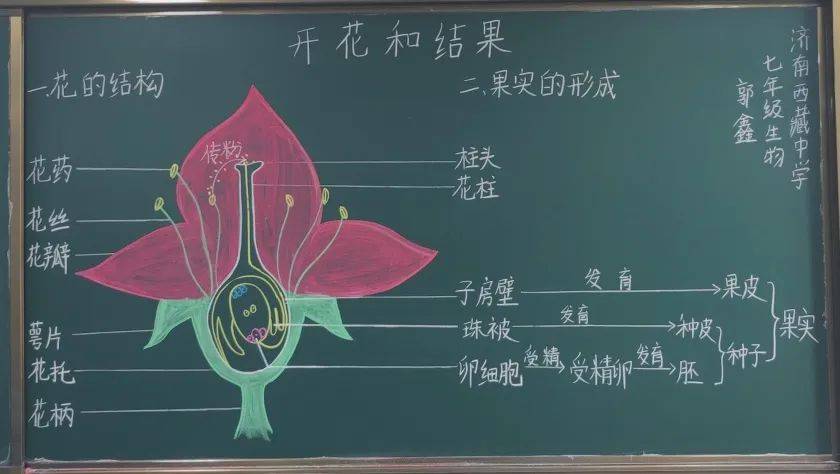 开花和结果
济南西藏中学
七年级生物
郭鑫
一、花的结构
二、果实的形成
传粉
花药
花丝
花瓣
萼片
花托
花柄
柱头
花柱
子房壁 发育 果皮
珠被 发育 种皮
卵细胞 受精 受精卵 发育 胚
种子
果实